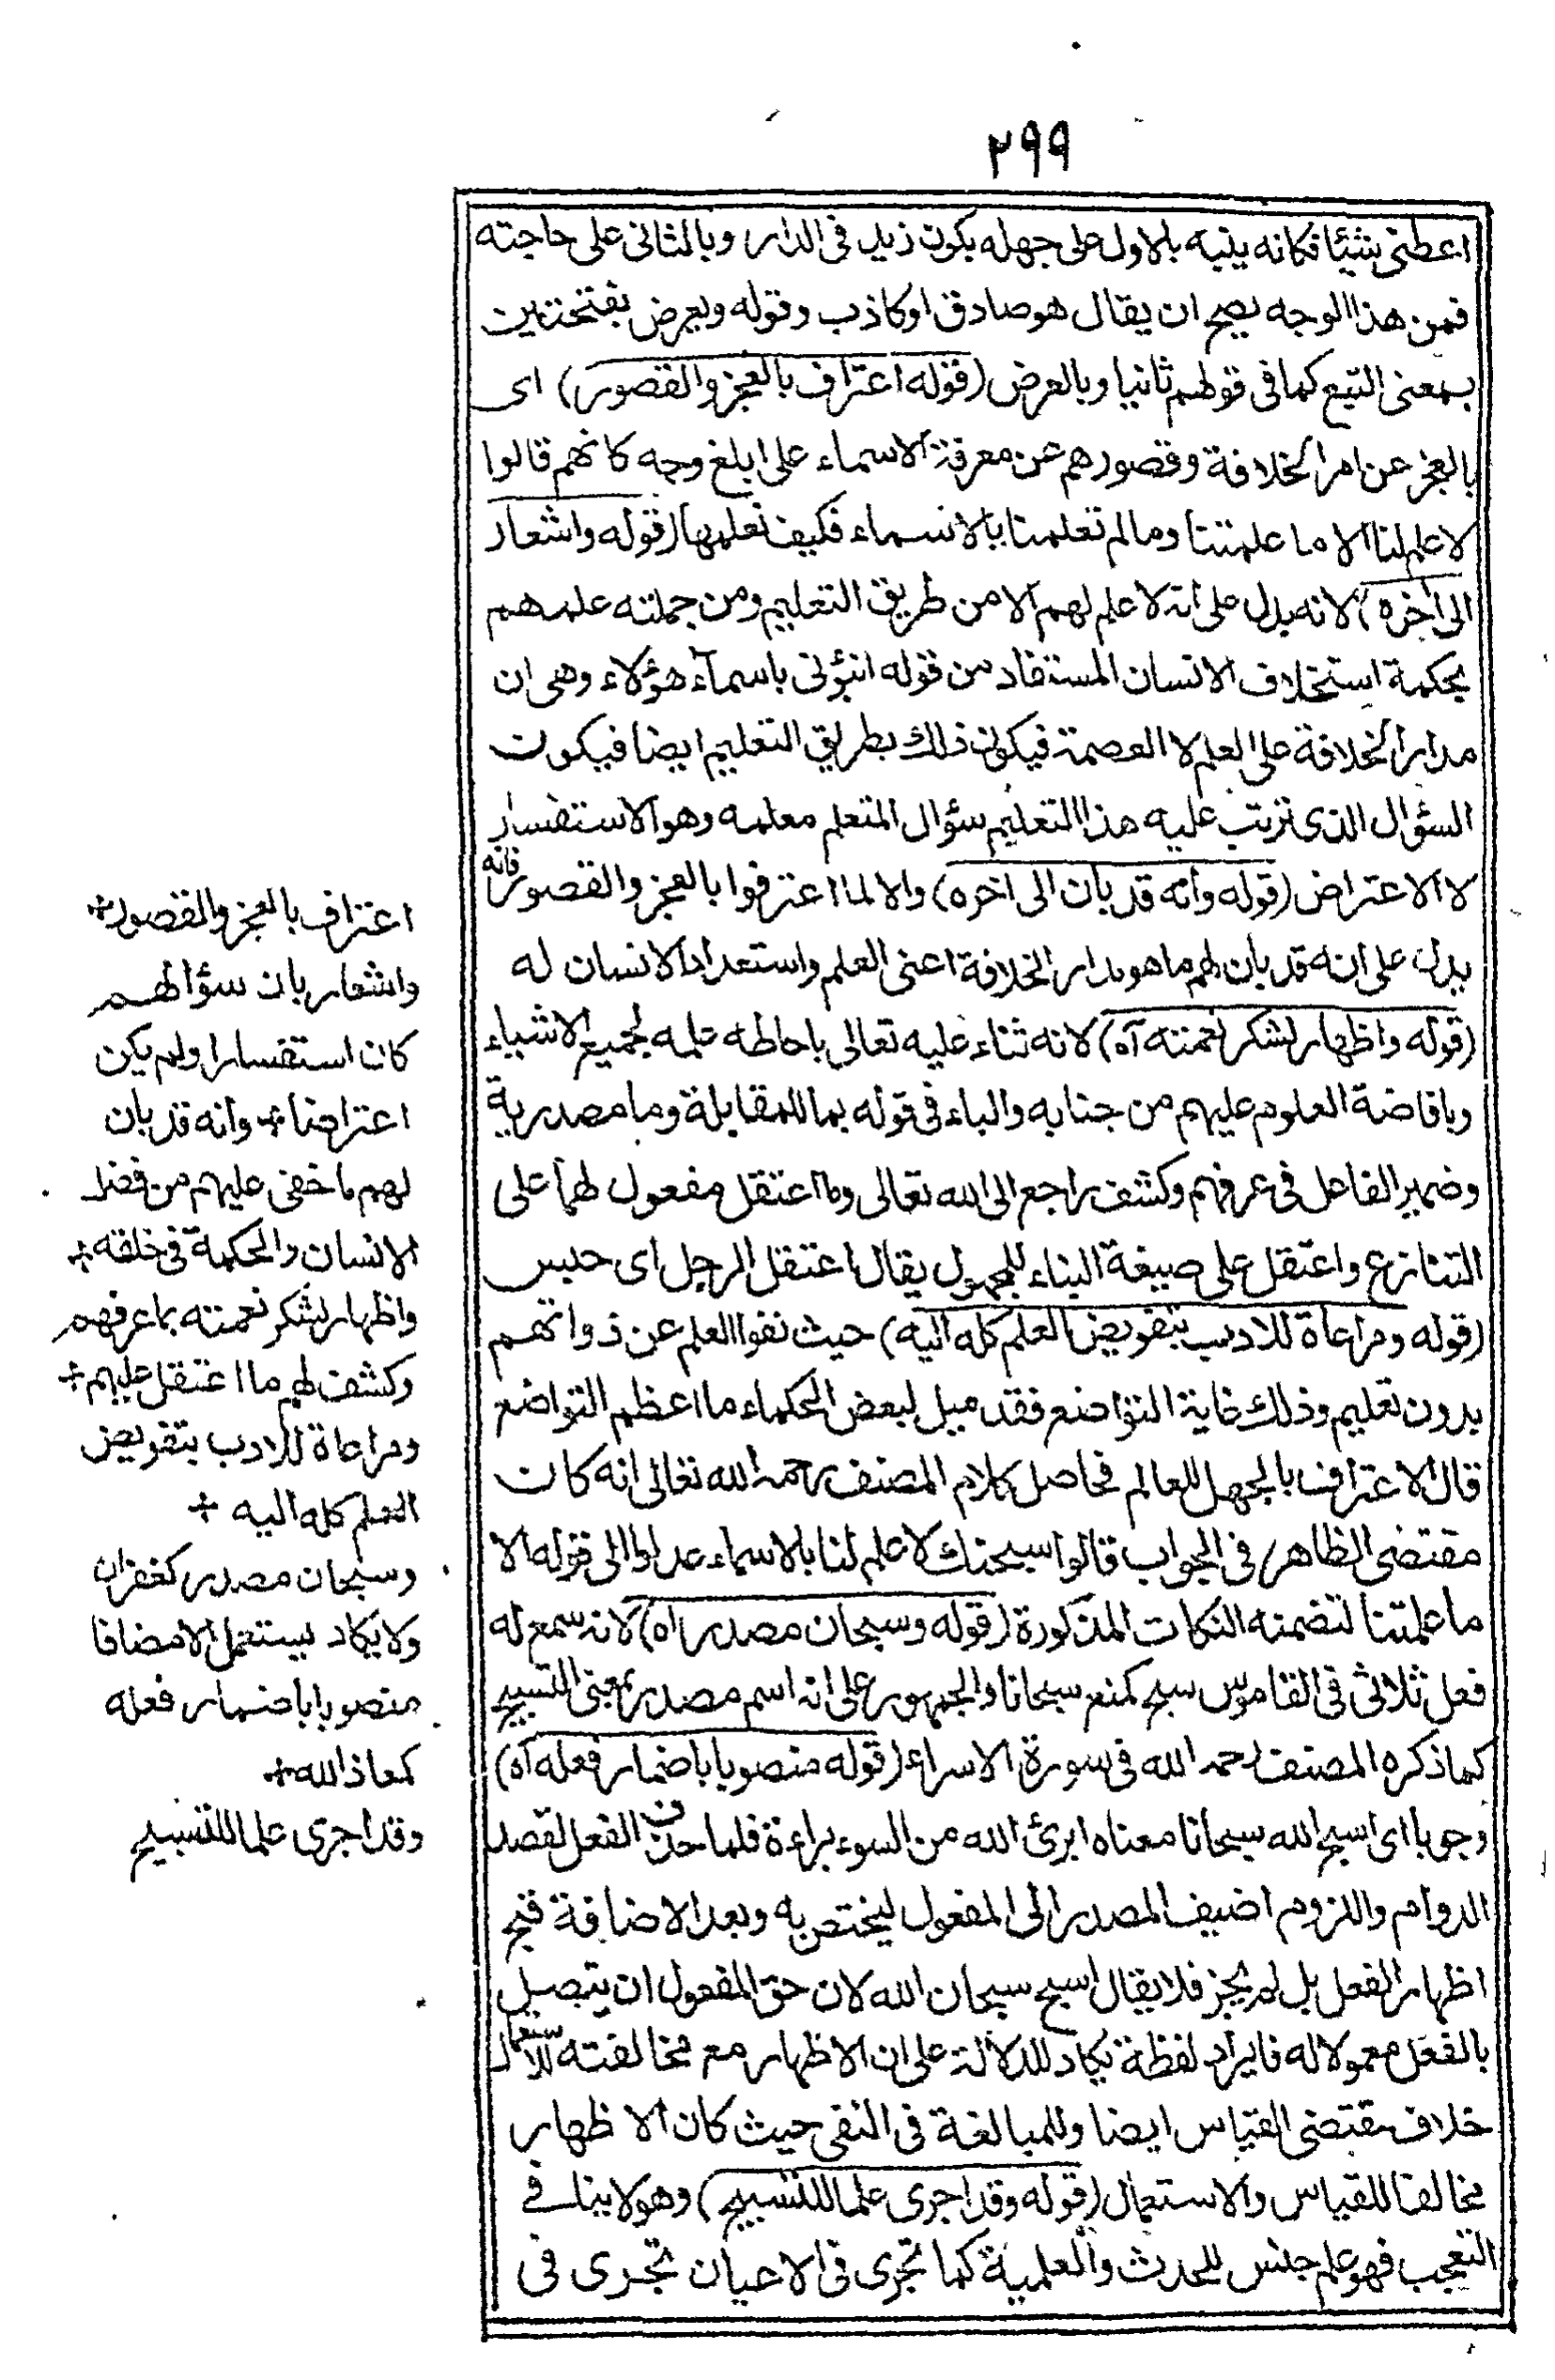 ٢٩٩
اعطنى شيئا فكانه ينبه بالاول على جهله بكون زيد فى الدار وبالثانى على حاجته
فمن هذا الوجه يصح ان يقال هو صادق او كاذب وقوله وبعرض بفتحتين
بمعنى التبع كما فى قولهم ثانيا وبالعرض (قوله اعتراف بالعجز والقصور) اى
بالعجز عن امر الخلافة وقصورهم عن معرفة الاسماء على ابلغ وجه كانهم قالوا
لا علم لنا الا ما علمتنا وما لم تعلمنا بالاسماء فكيف نعلمها (قوله واشعار
الى آخره) لانه يدل على انه لا علم لهم الا من طريق التعليم ومن جملته علمهم
بحكمة استخلاف الانسان المستفاد من قوله انبؤنى باسمآء هؤلاء وهى ان
مدار الخلافة على العلم لا العصمة فيكون ذلك بطريق التعليم ايضا فيكون
السؤال الذى ترتب عليه هذا التعليم سؤال المتعلم معلمه وهو الاستفسار
لا الاعتراض (قوله وانه قد بان الى اخره) والا لما اعترفوا بالعجز والقصور فانه
يدل على انه قد بان لهم ما هو مدار الخلافة اعنى العلم واستعداد الانسان له
(قوله واظهار لشكر نعمته آه) لانه ثناء عليه تعالى باحاطه علمه لجميع الاشياء
وبافاضة العلوم عليهم من جنابه والباء فى قوله بما للمقابلة وما مصدرية
وضمير الفاعل فى عرفهم وكشف راجع الى الله تعالى وما اعتقل مفعول لهما على
التنازع واعتقل على صيغة البناء للمجهول يقال اعتقل الرجل اى حبس
(قوله ومراعاة للادب بتفويض العلم كله اليه) حيث نفوا العلم عن ذواتهم
بدون تعليم وذلك غاية التواضع فقد قيل لبعض الحكماء ما اعظم التواضع
قال الاعتراف بالجهل للعالم فحاصل كلام المصنف رحمه الله تعالى انه كان
مقتضى الظاهر فى الجواب قالوا سبحنك لا علم لنا بالاسماء عدلوا الى قوله الا
ما علمتنا لتضمنه النكات المذكورة (قوله وسبحان مصدر اه) لانه سمع له
فعل ثلاثى فى القاموس سبح كمنع سبحانا والجمهور على انه اسم مصدر بمعنى التسبيح
كما ذكره المصنف رحمه الله فى سورة الاسراء (قوله منصوبا باضمار فعله آه)
وجوبا اى اسبح الله سبحانا معناه ابرئ الله من السوء براءة فلما حذف الفعل لقصد
الدوام واللزوم اضيف المصدر الى المفعول ليختص به وبعد الاضافة قبح
اظهار الفعل بل لم يجز فلا يقال اسبح سبحان الله لان حق المفعول ان يتصل
بالفعل معمولا له فايراد لفظة يكاد للدلالة على ان الاظهار مع مخالفته للاستعمال
خلاف مقتضى القياس ايضا وللمبالغة فى النفى حيث كان الاظهار
مخالفا للقياس والاستعمال (قوله وقد اجرى علما للتسبيح) وهو لا ينافى
التعجب فهو علم جنس للحدث والعلمية كما تجرى فى الاعيان تجرى فى
اعتراف بالعجز والقصور÷
واشعار بان سؤالهم
كان استفسارا ولم يكن
اعتراضا÷ وانه قد بان
لهم ما خفى عليهم من فضل
الانسان والحكمة فى خلقه÷
واظهار لشكر نعمته بما عرفهم
وكشف لهم ما اعتقل عليهم÷
ومراعاة للادب بتفويض
العلم كله اليه ÷
وسبحان مصدر كغفران
ولا يكاد يستعمل الا مضافا
منصوبا باضمار فعله
كمعاذ الله÷
وقد اجرى علما للتسبيح